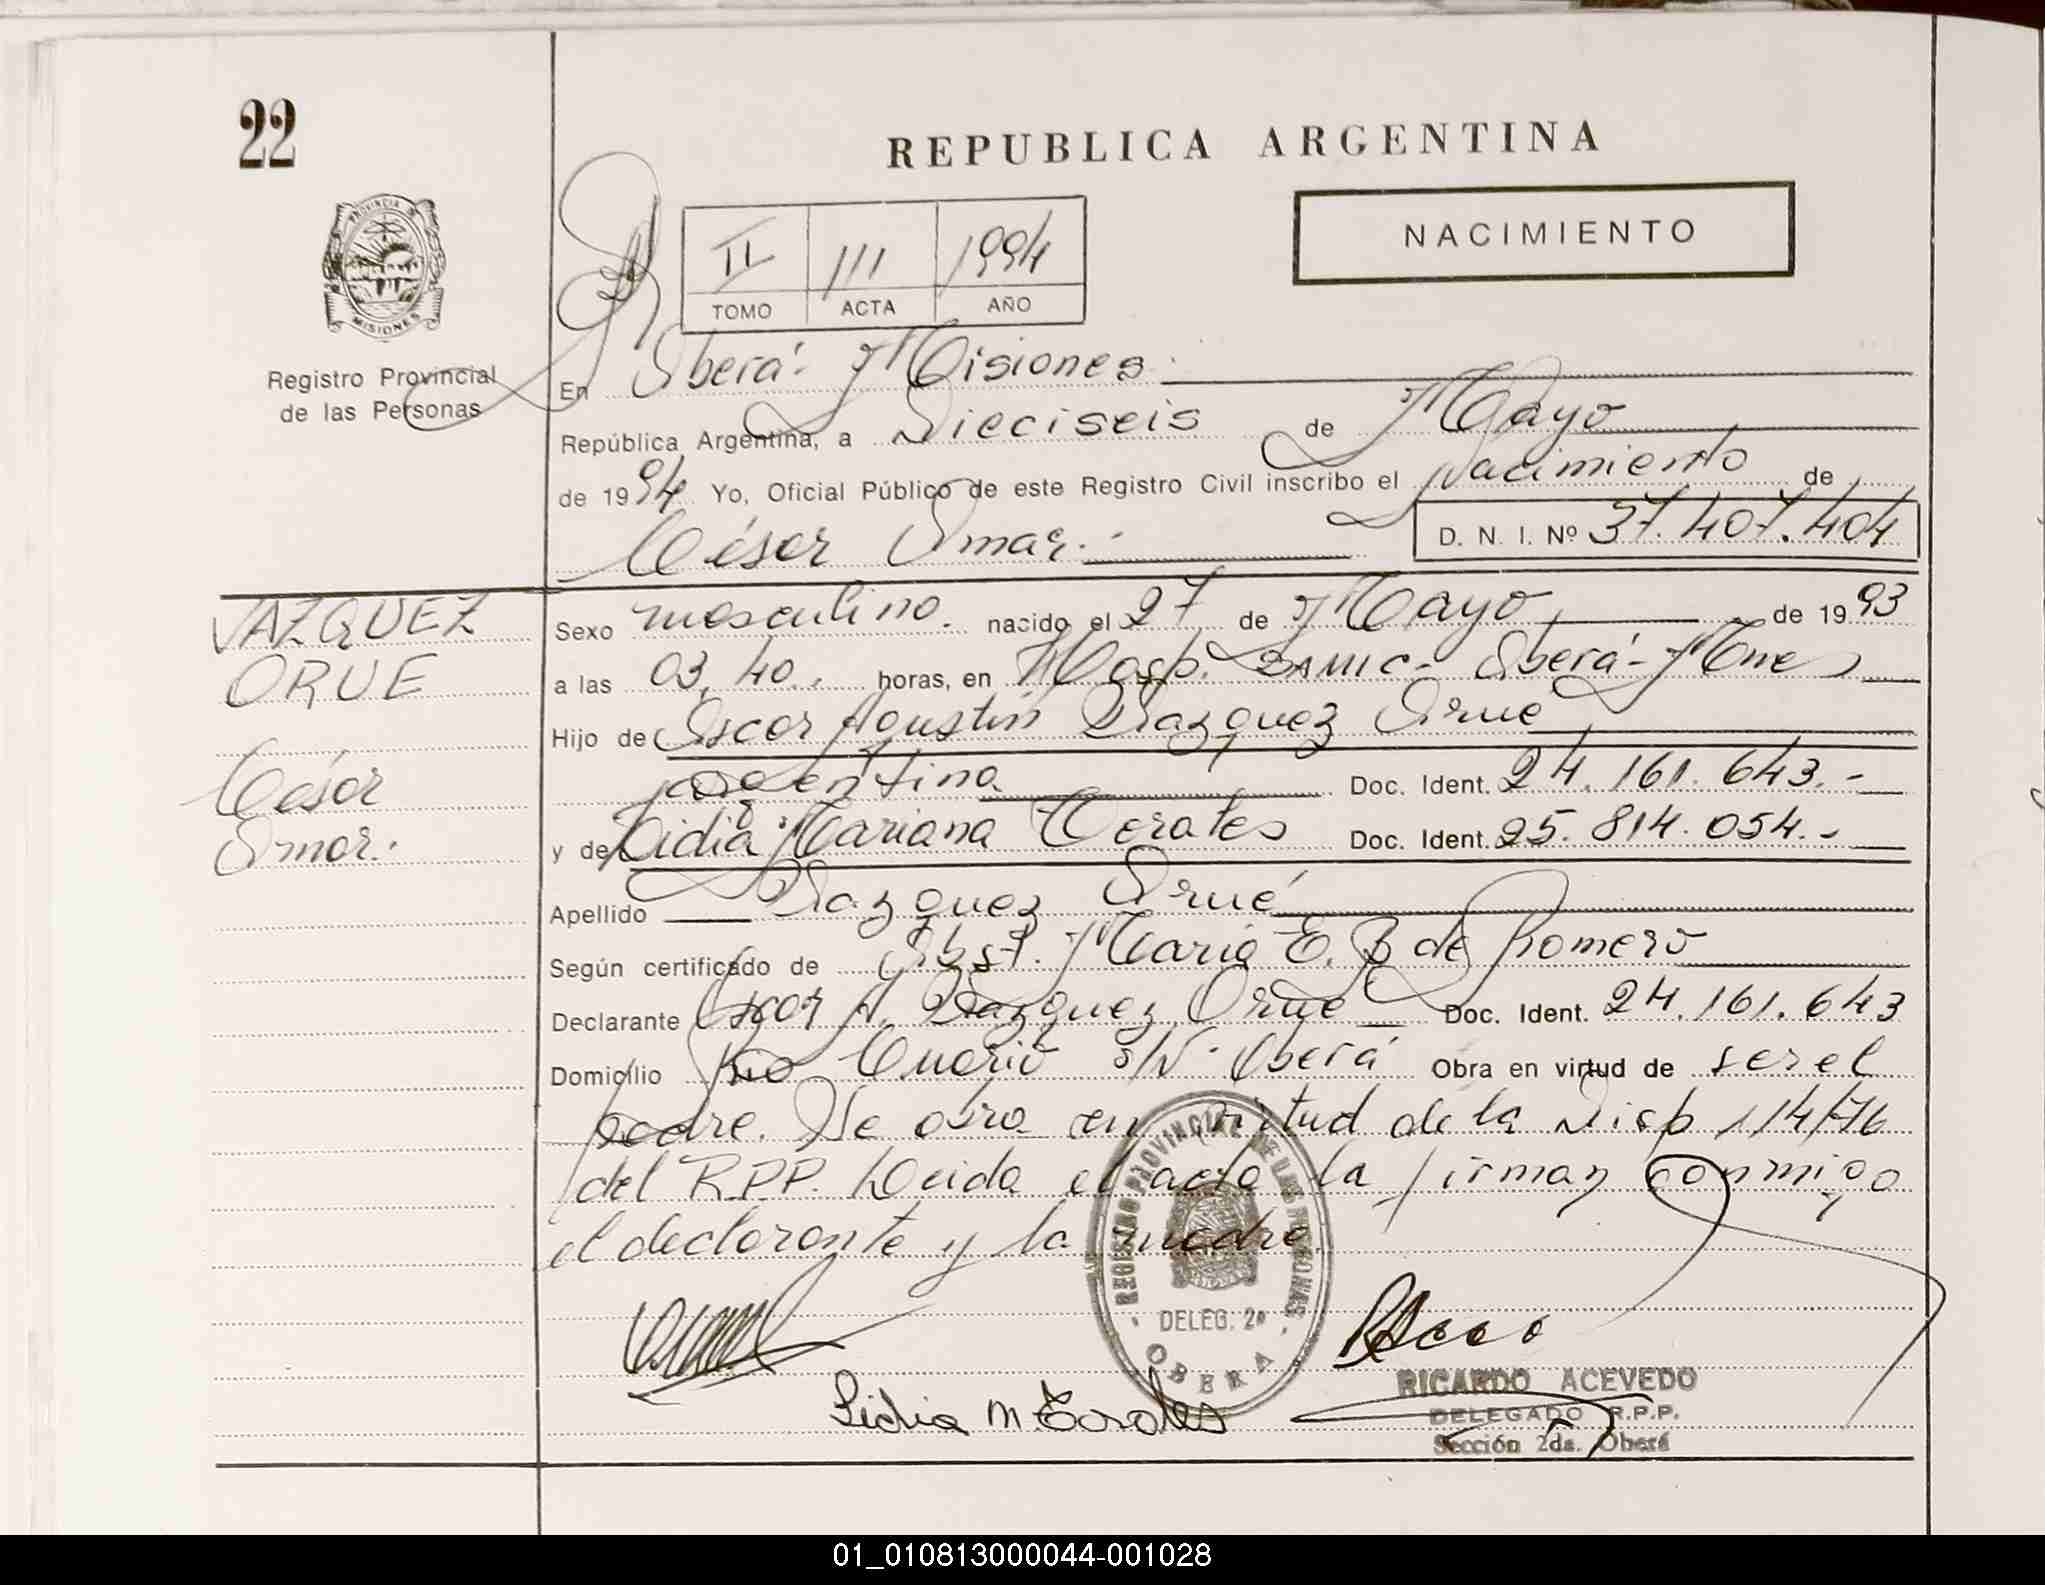 22
REPUBLICA ARGENTINA
PROVINCIA DE
MISIONES
Registro Provincial
de las Personas
II 111 1994
TOMO ACTA AÑO
NACIMIENTO
En Oberá - Misiones
República Argentina, a Dieciseis de Mayo
de 1994 Yo, Oficial Público de este Registro Civil inscribo el Nacimiento de
César Omar. D. N. I. Nº 37.407.404
VAZQUEZ
ORUE
César
Omar.
Sexo masculino. nacido el 27 de Mayo de 1993
a las 03,40. horas, en Hosp. SAMIC - Oberá - Mnes
Hijo de Oscar Agustin Vazquez Orue
argentino Doc. Ident. 24.161.643.-
y de Lidia Mariana Doc. Ident. 25.814.054.-
Apellido Vazquez Orué
Según certificado de Obst. Maria E. B de Romero
Declarante Oscar A. Vazquez Orue Doc. Ident. 24.161.643
Domicilio Rio S/N - Oberá Obra en virtud de ser el
padre. Se obra en virtud de la Disp 114/76
del R.P.P. Leida el acta la firman conmigo
el declarante y la madre.
REGISTRO PROVINCIAL DE LAS PERSONAS
DELEG. 2ª
OBERA
Lidia M
RICARDO ACEVEDO
DELEGADO R.P.P.
Sección 2da. Oberá
01_010813000044-001028